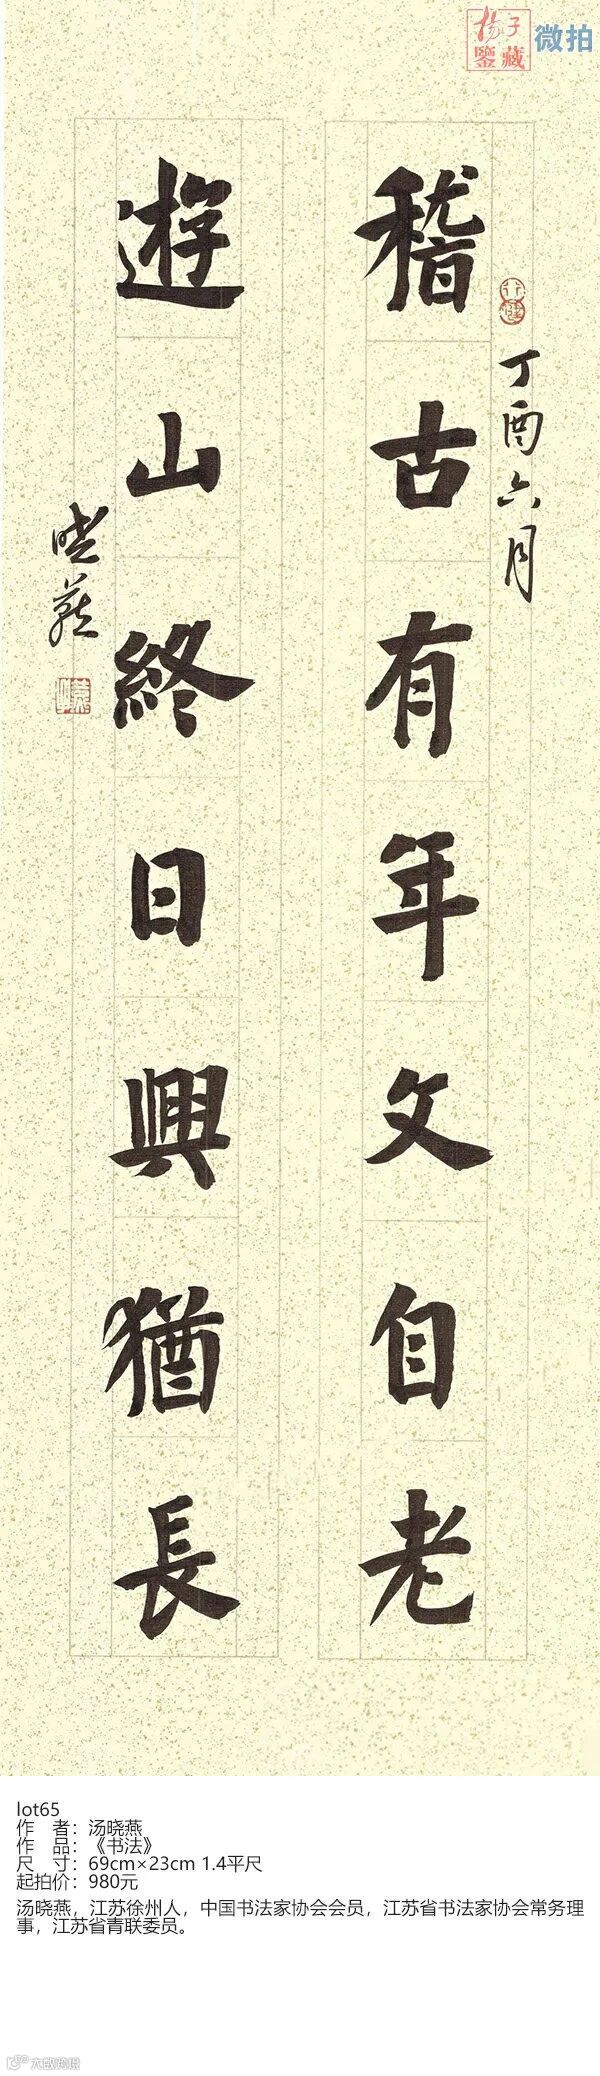 楊子
鑒藏
微拍
稽古有年文自老
遊山終日興猶長
丁酉六月
晓燕
lot65
作 者：汤晓燕
作 品：《书法》
尺 寸：69cm×23cm 1.4平尺
起拍价：980元
汤晓燕，江苏徐州人，中国书法家协会会员，江苏省书法家协会常务理
事，江苏省青联委员。
大咖跨境